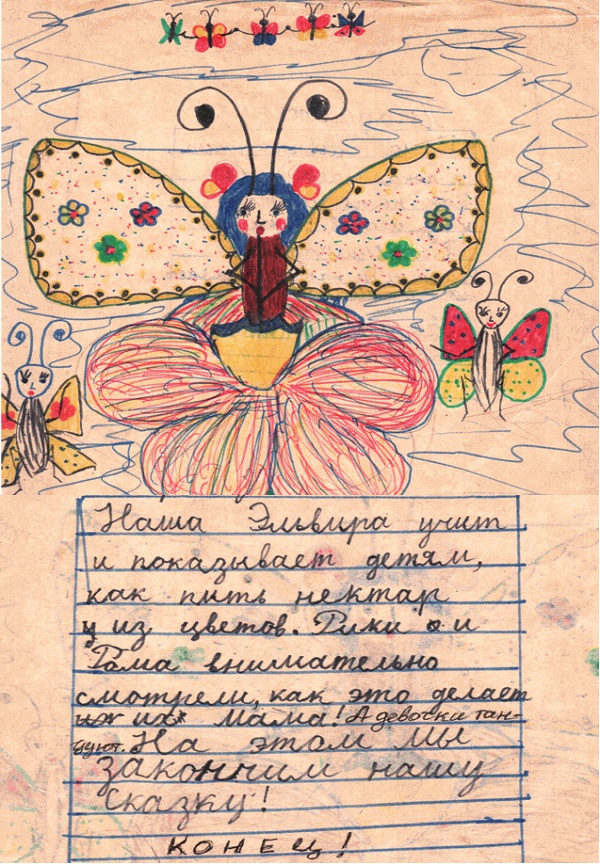 Наша Эльвира учит
и показывает детям,
как пить нектар
из цветов. Рики и
Рома внимательно
смотрели, как это делает
их мама! А девочки тан-
цуют. На этом мы
закончим нашу
сказку!
КОНЕЦ!